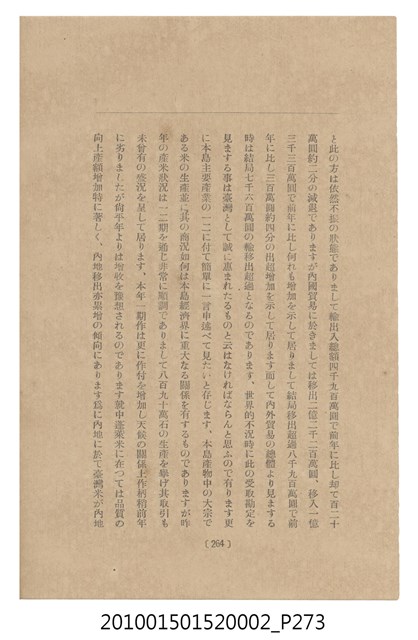 と此の方は依然不振の狀態でありまして輸出入總額四千九百萬圓で前年に比し却て百二十
萬圓約二分の減退でありますが內國貿易に於きましては移出二億二千二百萬圓、移入一億
三千三百萬圓で前年に比し何れも增加を示して居りまして結局移出超過八千九百萬圓で前
年に比し三百萬圓約四分の出超增加を示して居ります而して內外貿易の總體より見まする
時は結局七千六百萬圓の輸移出超過となるのであります、世界的不況時に此の受取勘定を
見まする事は臺灣として誠に惠まれたるものと云はなければならんと思ふので有ります更
に本島主要產業の一二に付て簡單に一言申述べて見たいと存じます。本島產物中の大宗で
ある米の生產並に其の商況如何は本島經濟界に重大なる關係を有するものでありますが昨
年の產米狀況は一二期を通じ非常に順調でありまして八百九十萬石の生產を擧げ其取引も
未曾有の盛況を呈して居ります、本年一期作は更に作付を增加し天候の關係上作柄稍前年
に劣りましたが尙平年よりは增收を豫想されるのであります就中蓬萊米に在つては品質の
向上產額增加特に著しく、內地移出亦累增の傾向にあります爲に內地に於て臺灣米が內地
(264)
201001501520002_P273